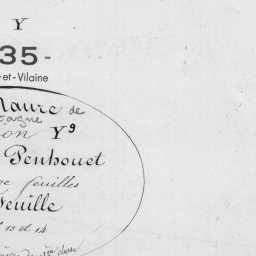 Y
35-
-et-Vilaine
Maure de
tagne
ion Y9
Penhouet
feuilles
Feuille
13 et 14